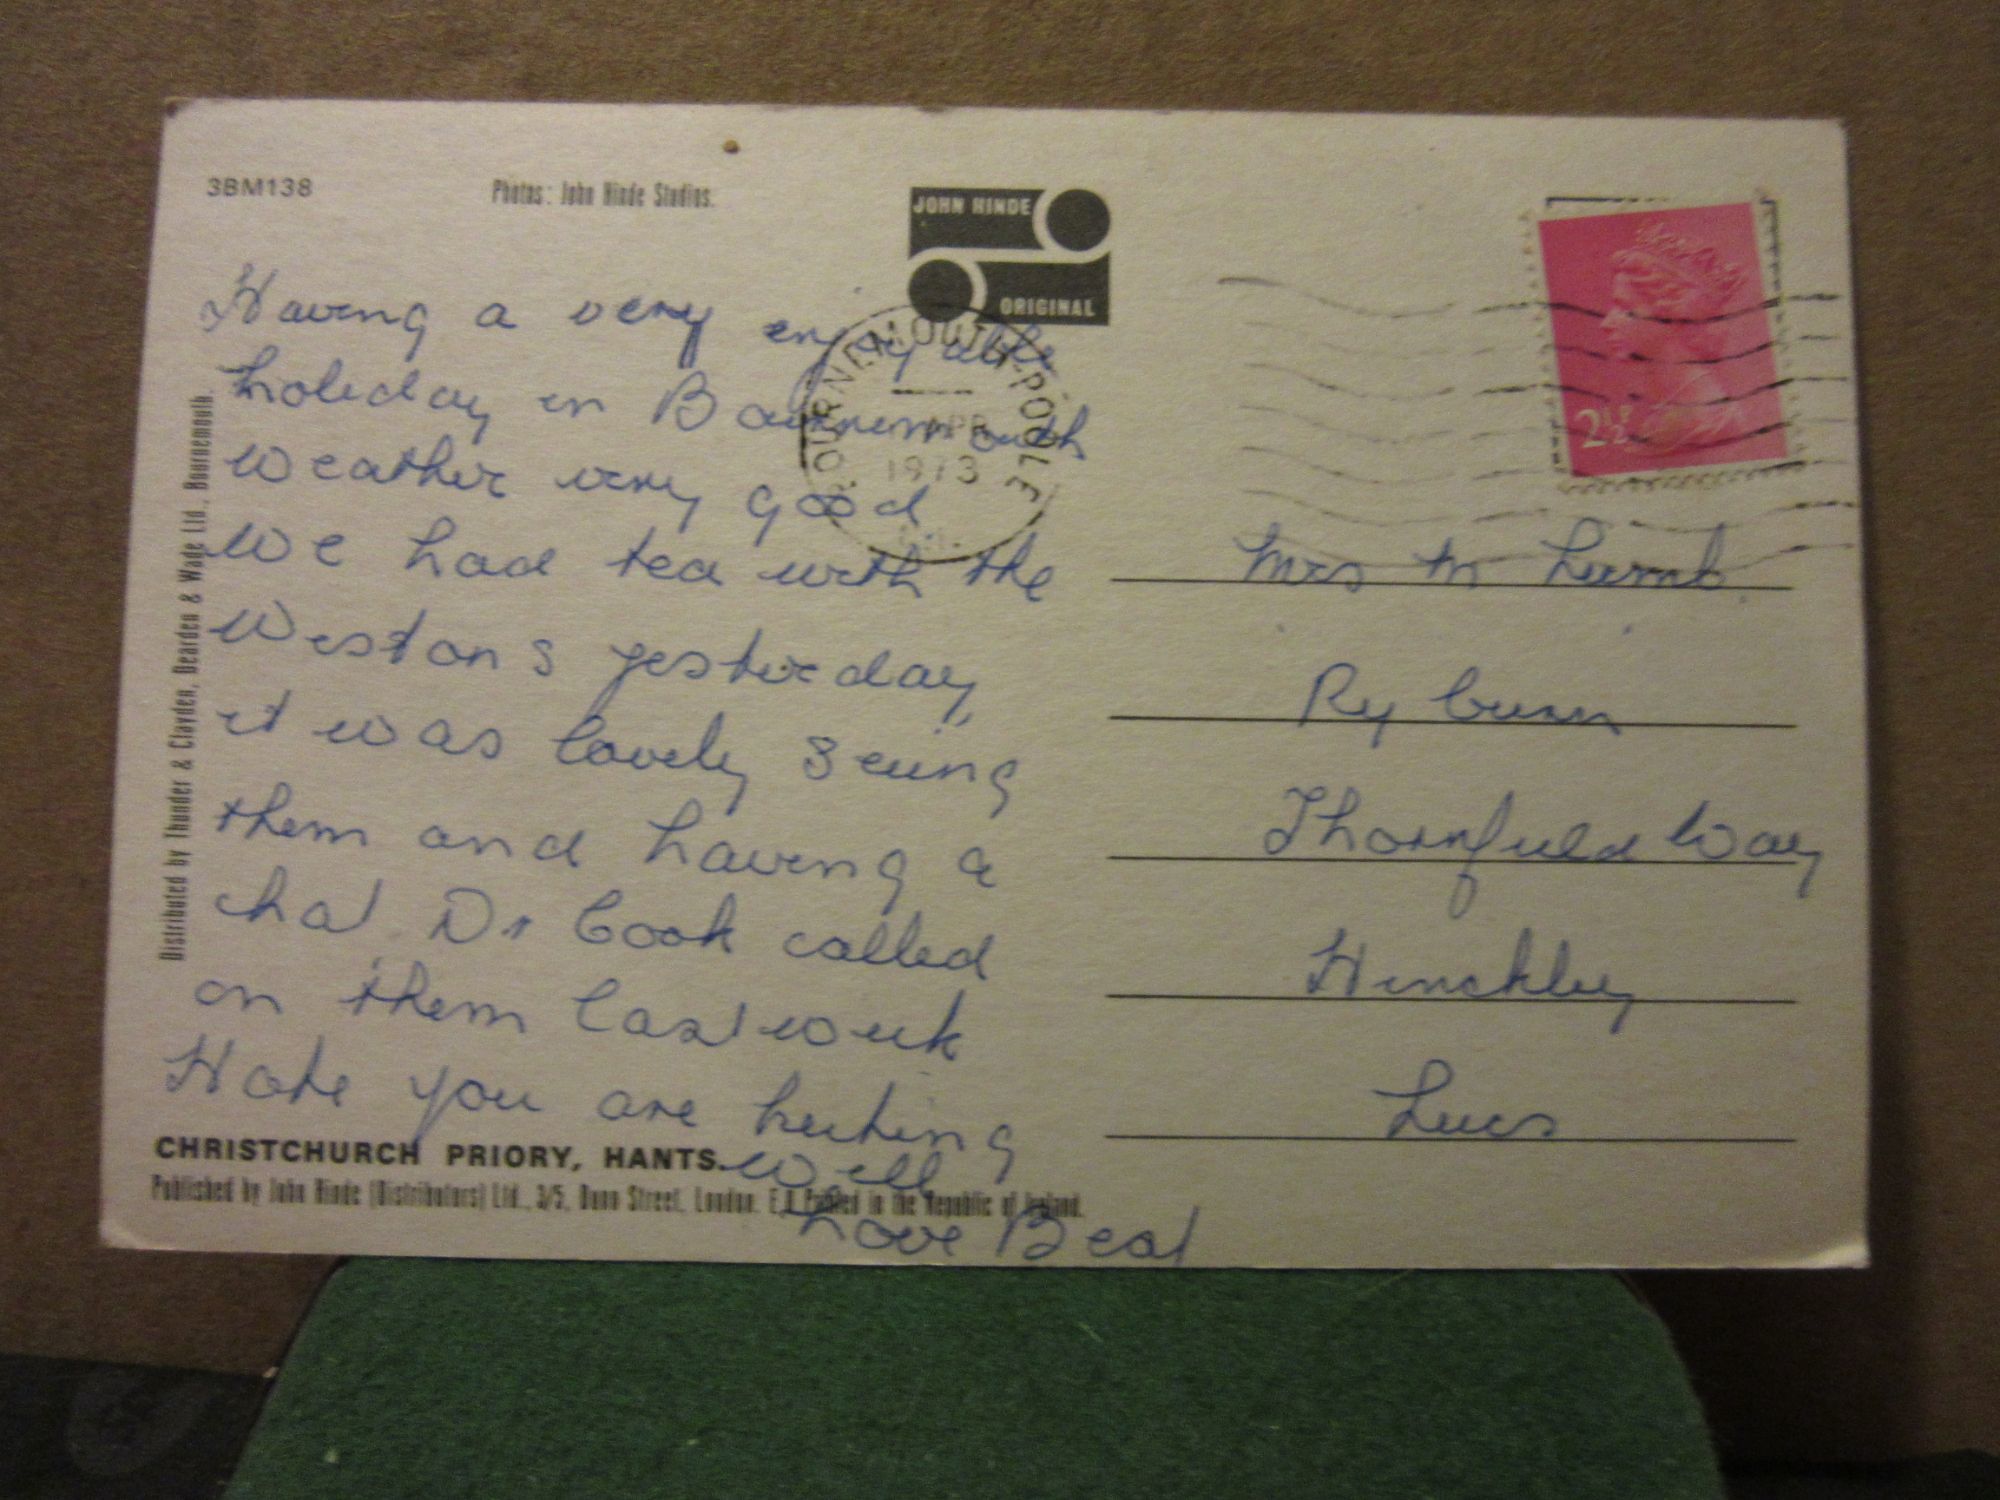 3BM138
Photos: John Hinde Studios.
JOHN HINDE
ORIGINAL
BOURNEMOUTH-POOLE
APR
1973
2½P
Having a very enjoyable
holiday in Bournemouth
weather very good
we had tea with the
Westons yesterday,
it was lovely seeing
them and having a
chat Dr Cook called
on them last week
Hope you are keeping
well
Love Beat
Mrs M Lumb.
Ryburn
Thornfield Way
Hinckley
Leics
CHRISTCHURCH PRIORY, HANTS.
Published by John Hinde (Distributors) Ltd., 3/5, Dunn Street, London. E.8 Printed in the Republic of Ireland.
Distributed by Thunder & Clayden, Dearden & Wade Ltd., Bournemouth.